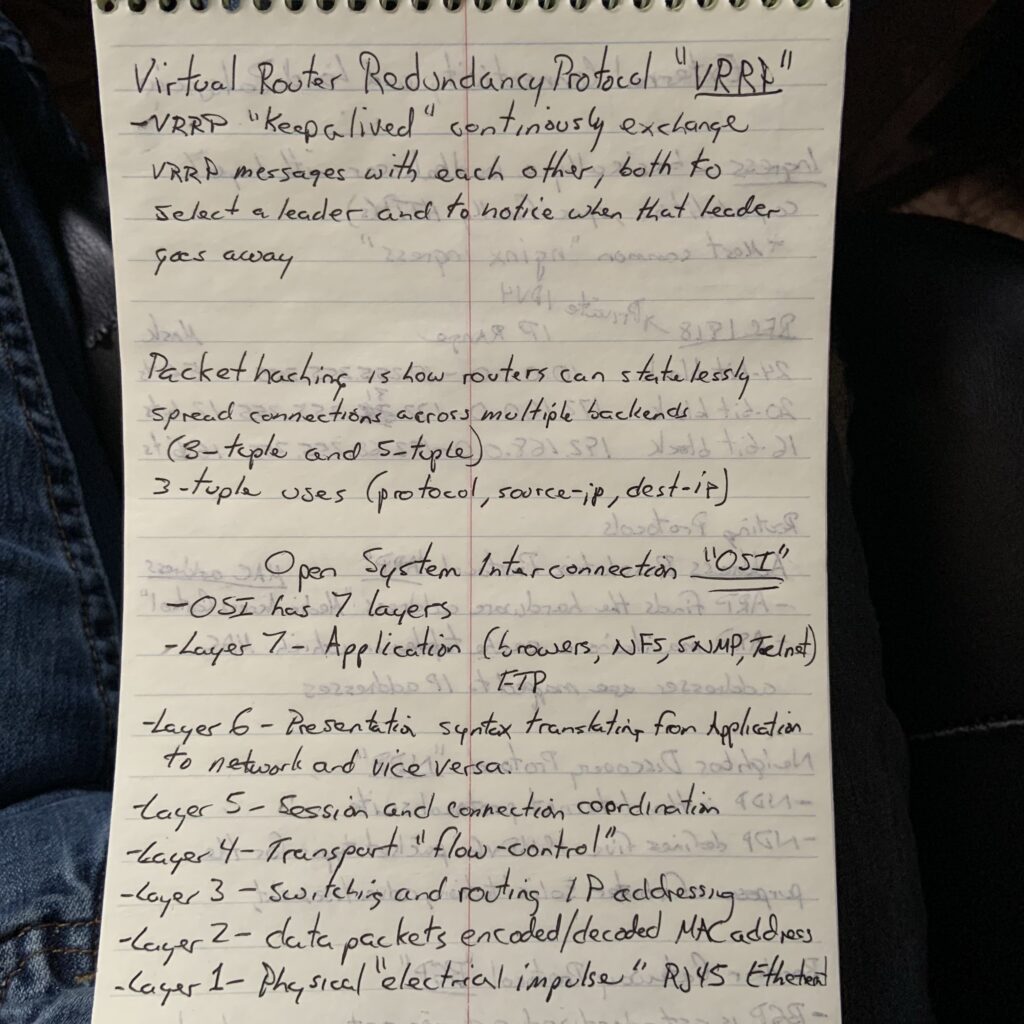 Virtual Router Redundancy Protocol "VRRP"
-VRRP "Keepalived" continously exchange
VRRP messages with each other, both to
select a leader and to notice when that leader
goes away
Packet hashing is how routers can statelessly
spread connections across multiple backends
(3-tuple and 5-tuple)
3-tuple uses (protocol, source-ip, dest-ip)
Open System Interconnection "OSI"
-OSI has 7 layers
-Layer 7- Application (browers, NFS, SNMP, Telnet)
FTP
-Layer 6- Presentation syntax translating from Application
to network and vice versa.
-Layer 5- Session and connection coordination
-Layer 4- Transport "flow-control"
-Layer 3- switching and routing IP addressing
-Layer 2- data packets encoded/decoded MAC address
-Layer 1- Physical "electrical impulse" RJ45